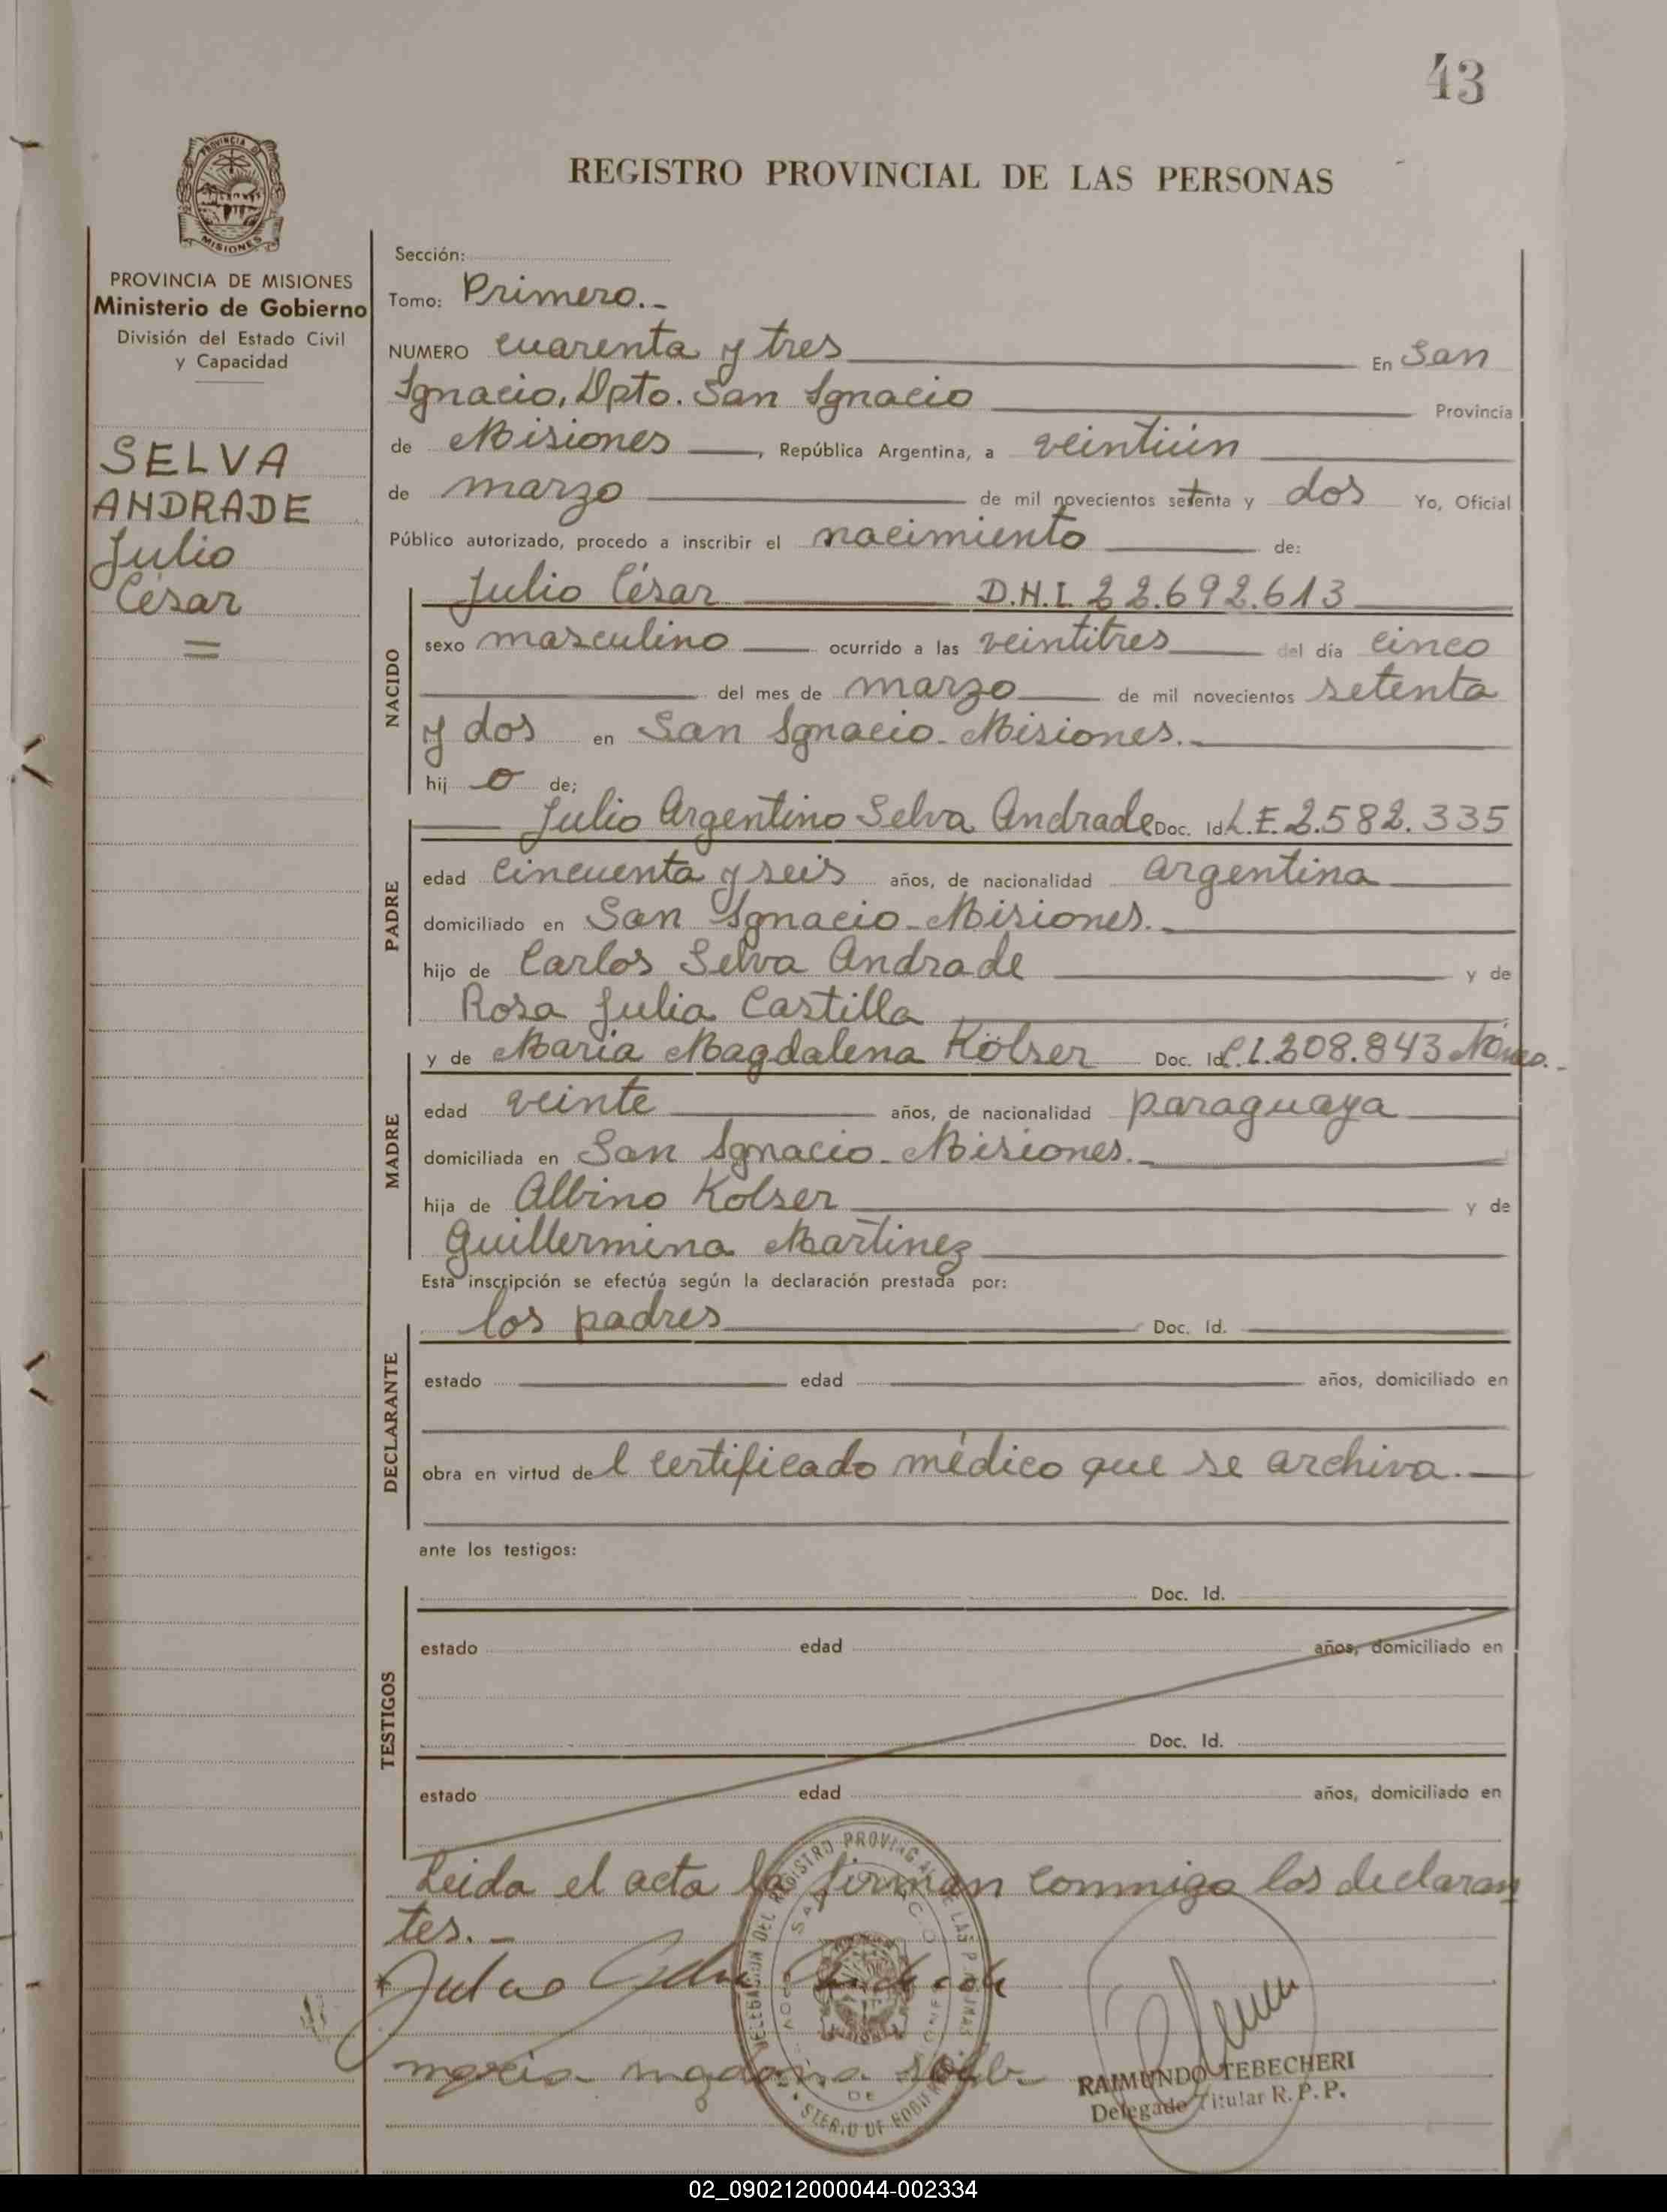 43
PROVINCIA DE
MISIONES
REGISTRO PROVINCIAL DE LAS PERSONAS
PROVINCIA DE MISIONES
Ministerio de Gobierno
División del Estado Civil
y Capacidad
SELVA
ANDRADE
Julio
César
Sección:
Tomo: Primero.-
NUMERO cuarenta y tres En San
Ignacio, Dpto. San Ignacio Provincia
de Misiones, República Argentina, a veintiún
de marzo de mil novecientos setenta y dos Yo, Oficial
Público autorizado, procedo a inscribir el nacimiento de:
NACIDO
Julio César D.N.I. 22.692.613
sexo masculino ocurrido a las veintitres del día cinco
del mes de marzo de mil novecientos setenta
y dos en San Ignacio - Misiones.-
hij o de;
PADRE
Julio Argentino Selva Andrade Doc. Id L.E. 2.582.335
edad cincuenta y seis años, de nacionalidad argentina
domiciliado en San Ignacio - Misiones.-
hijo de Carlos Selva Andrade y de
Rosa Julia Castilla
MADRE
y de Maria Magdalena Kölser Doc. Id C.I. 208.843
edad veinte años, de nacionalidad paraguaya
domiciliada en San Ignacio - Misiones.-
hija de Albino Kolser y de
Guillermina Martinez
Esta inscripción se efectúa según la declaración prestada por:
DECLARANTE
los padres Doc. Id.
estado edad años, domiciliado en
obra en virtud del certificado médico que se archiva.-
ante los testigos:
TESTIGOS
Doc. Id.
estado edad años, domiciliado en
Doc. Id.
estado edad años, domiciliado en
Leida el acta la firman conmigo los declaran
tes.-
Julio Selva Andrade
maria
RAIMUNDO TEBECHERI
Delegado Titular R. P. P.
DELEGACION DEL REGISTRO PROVINCIAL DE LAS PERSONAS
02_090212000044-002334